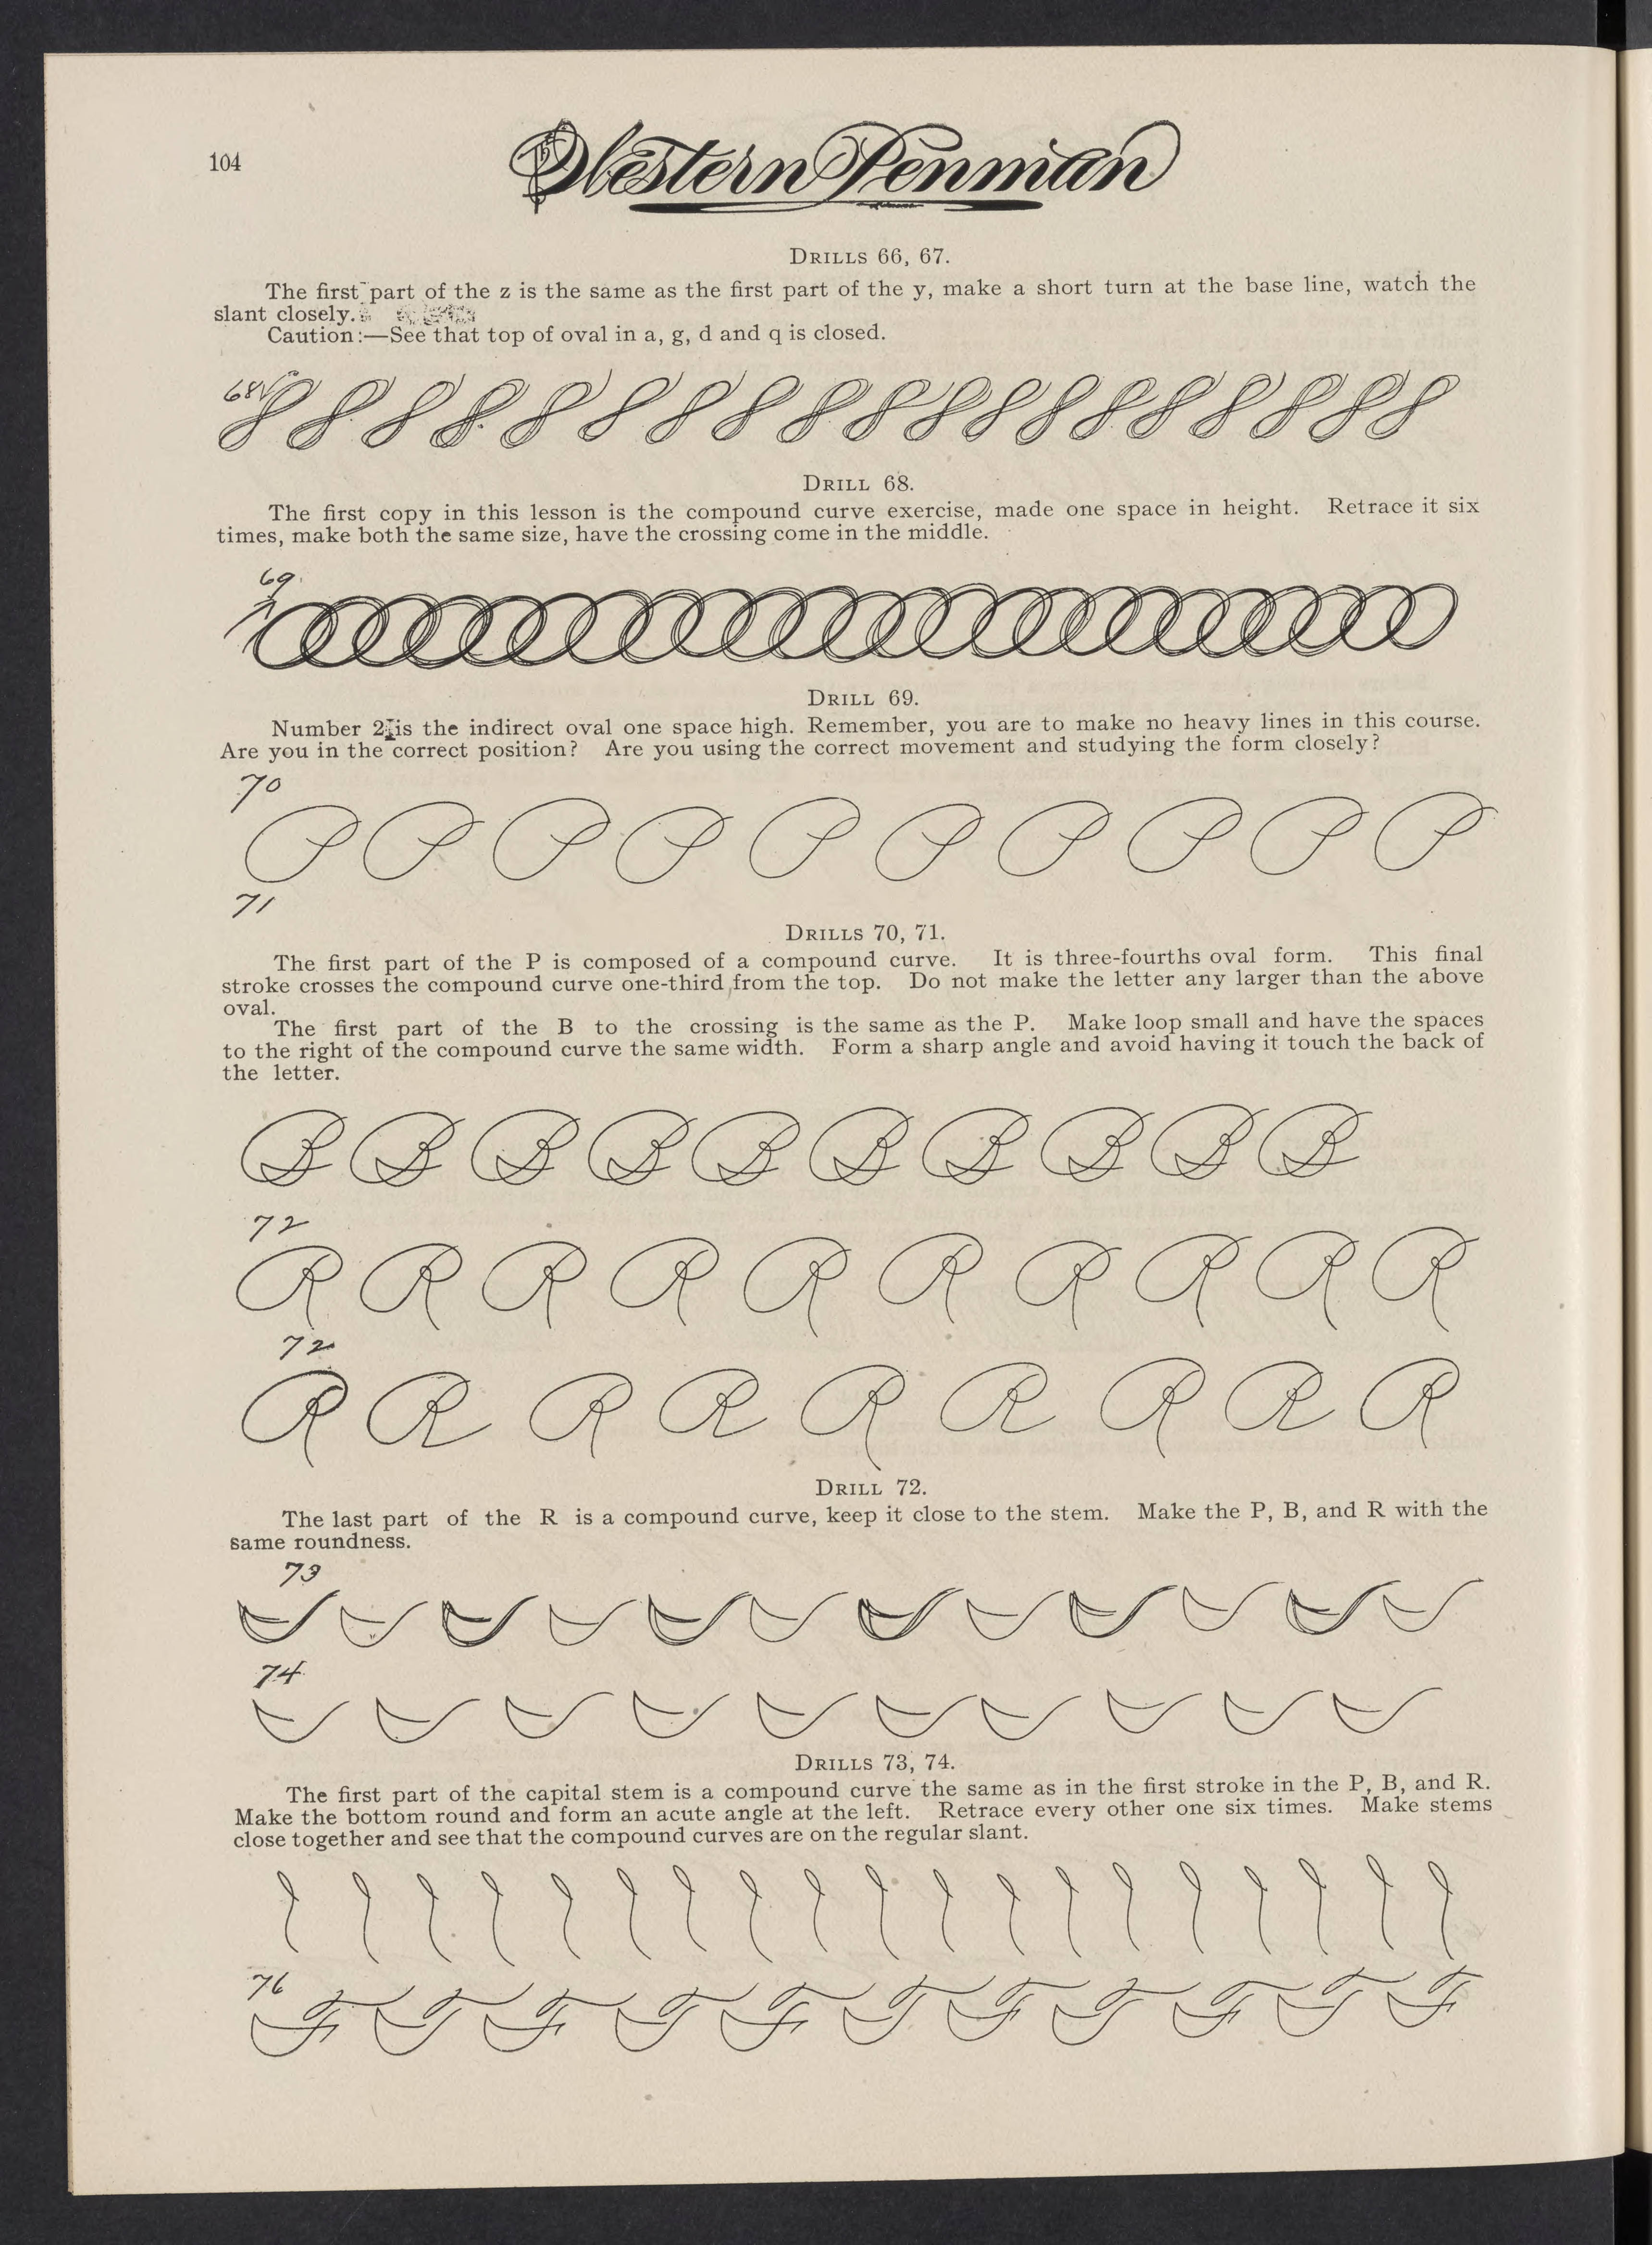 104
Western Penman
DRILLS 66, 67.
The first part of the z is the same as the first part of the y, make a short turn at the base line, watch the
slant closely.
Caution:—See that top of oval in a, g, d and q is closed.
68
DRILL 68.
The first copy in this lesson is the compound curve exercise, made one space in height. Retrace it six
times, make both the same size, have the crossing come in the middle.
69
DRILL 69.
Number 2 is the indirect oval one space high. Remember, you are to make no heavy lines in this course.
Are you in the correct position? Are you using the correct movement and studying the form closely?
70
P P P P P P P P P P
71
DRILLS 70, 71.
The first part of the P is composed of a compound curve. It is three-fourths oval form. This final
stroke crosses the compound curve one-third from the top. Do not make the letter any larger than the above
oval.
The first part of the B to the crossing is the same as the P. Make loop small and have the spaces
to the right of the compound curve the same width. Form a sharp angle and avoid having it touch the back of
the letter.
B B B B B B B B B B
72
R R R R R R R R R R
72
R R R R R R R R R
DRILL 72.
The last part of the R is a compound curve, keep it close to the stem. Make the P, B, and R with the
same roundness.
73
74
DRILLS 73, 74.
The first part of the capital stem is a compound curve the same as in the first stroke in the P, B, and R.
Make the bottom round and form an acute angle at the left. Retrace every other one six times. Make stems
close together and see that the compound curves are on the regular slant.
76
F T F T F T F T F T F